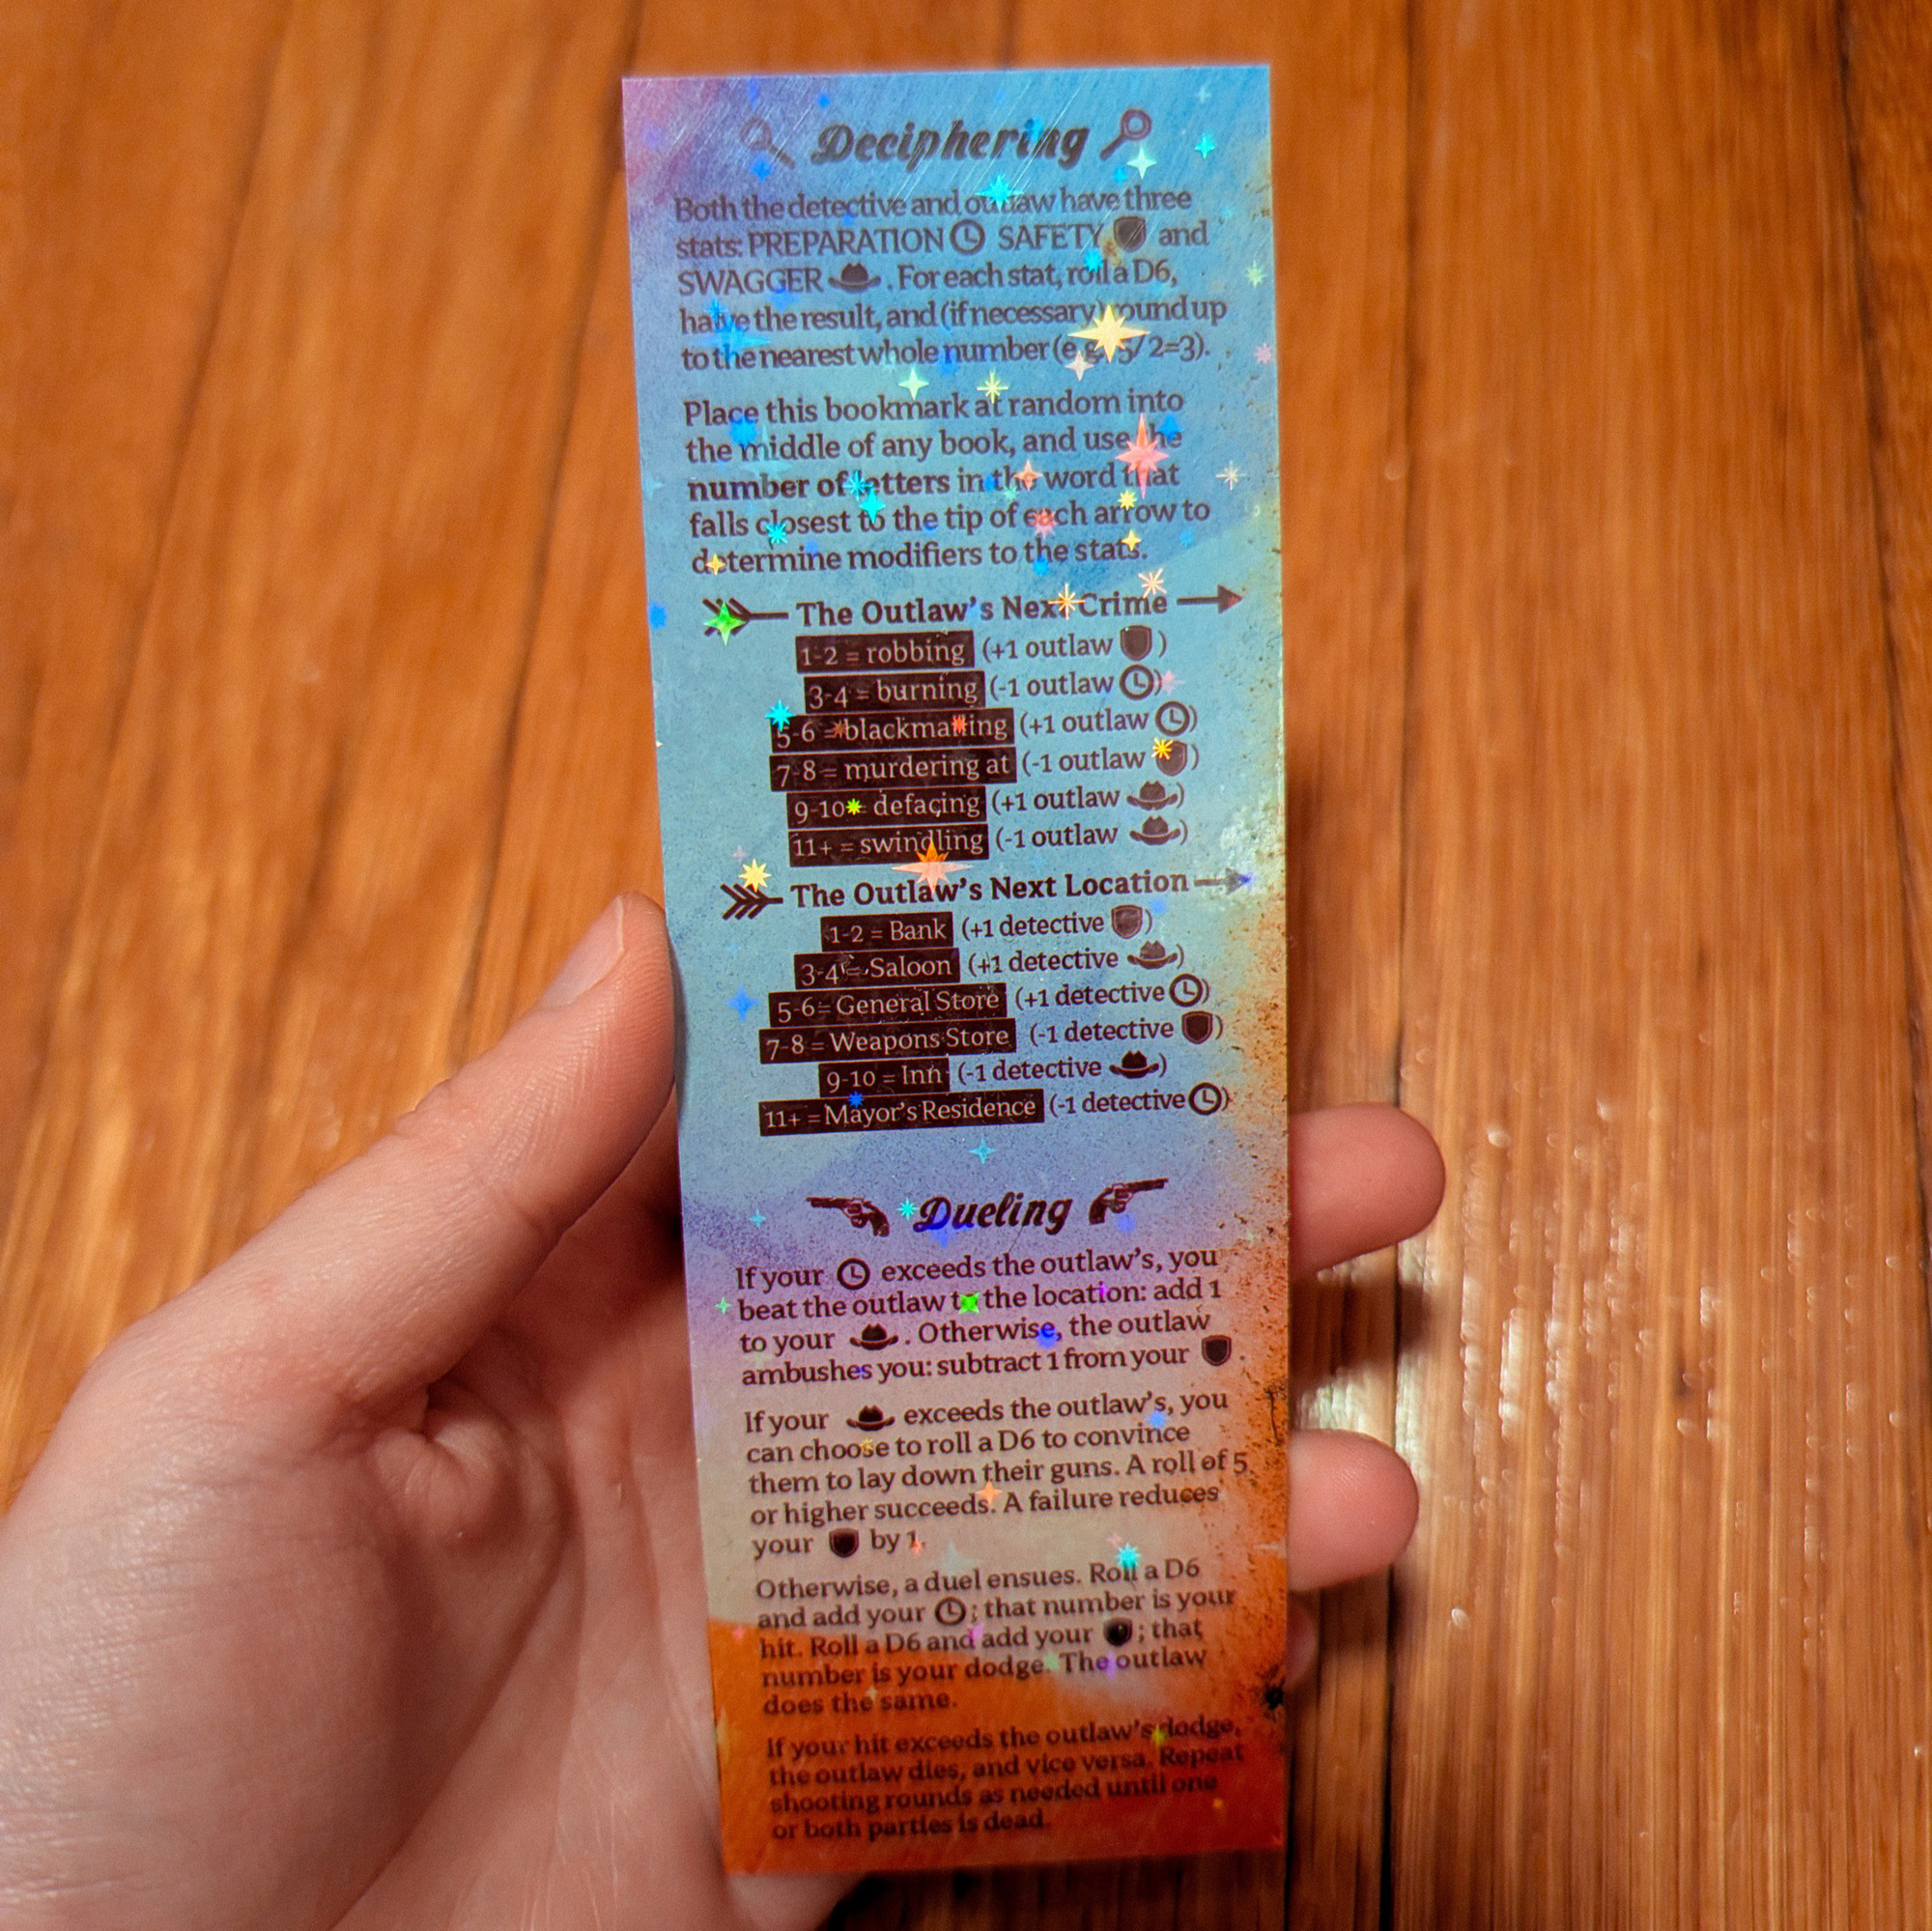 Deciphering
Both the detective and outlaw have three
stats: PREPARATION SAFETY and
SWAGGER . For each stat, roll a D6,
halve the result, and (if necessary) round up
to the nearest whole number (e.g. 5/2=3).
Place this bookmark at random into
the middle of any book, and use the
number of letters in the word that
falls closest to the tip of each arrow to
determine modifiers to the stats.
The Outlaw's Next Crime
1-2 = robbing (+1 outlaw )
3-4 = burning (-1 outlaw )
5-6 = blackmailing (+1 outlaw )
7-8 = murdering at (-1 outlaw )
9-10 = defacing (+1 outlaw )
11+ = swindling (-1 outlaw )
The Outlaw's Next Location
1-2 = Bank (+1 detective )
3-4 = Saloon (+1 detective )
5-6 = General Store (+1 detective )
7-8 = Weapons Store (-1 detective )
9-10 = Inn (-1 detective )
11+ = Mayor's Residence (-1 detective )
Dueling
If your exceeds the outlaw's, you
beat the outlaw to the location: add 1
to your . Otherwise, the outlaw
ambushes you: subtract 1 from your .
If your exceeds the outlaw's, you
can choose to roll a D6 to convince
them to lay down their guns. A roll of 5
or higher succeeds. A failure reduces
your by 1.
Otherwise, a duel ensues. Roll a D6
and add your ; that number is your
hit. Roll a D6 and add your ; that
number is your dodge. The outlaw
does the same.
If your hit exceeds the outlaw's dodge,
the outlaw dies, and vice versa. Repeat
shooting rounds as needed until one
or both parties is dead.